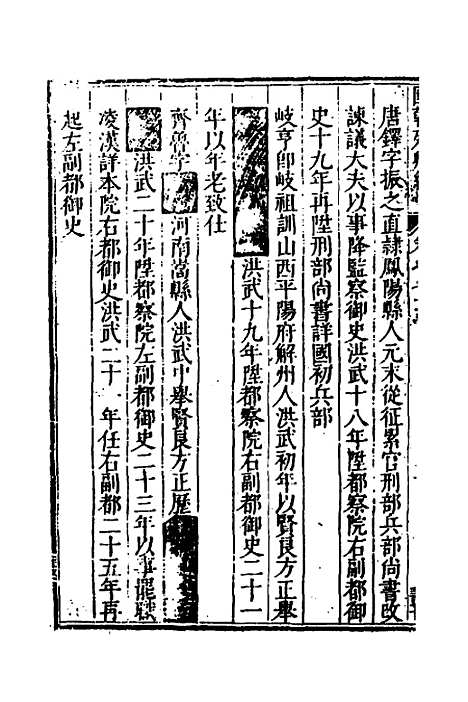 唐鐸字振之直隷鳳陽縣人元末從征累官刑部兵部尚書改
諫議大夫以事降監察御史洪武十八年陞都察院右副都御
史十九年再陞刑部尚書詳國初兵部
岐亨卽岐祖訓山西平陽府解州人洪武初年以賢良方正舉
洪武十九年陞都察院右副都御史二十一
年以年老致仕
齊魯字 河南嵩縣人洪武中舉賢良方正歷
洪武二十年陞都察院左副都御史二十三年以事罷職
凌漢詳本院右都御史洪武二十一年任右副都二十五年再
起左副都御史